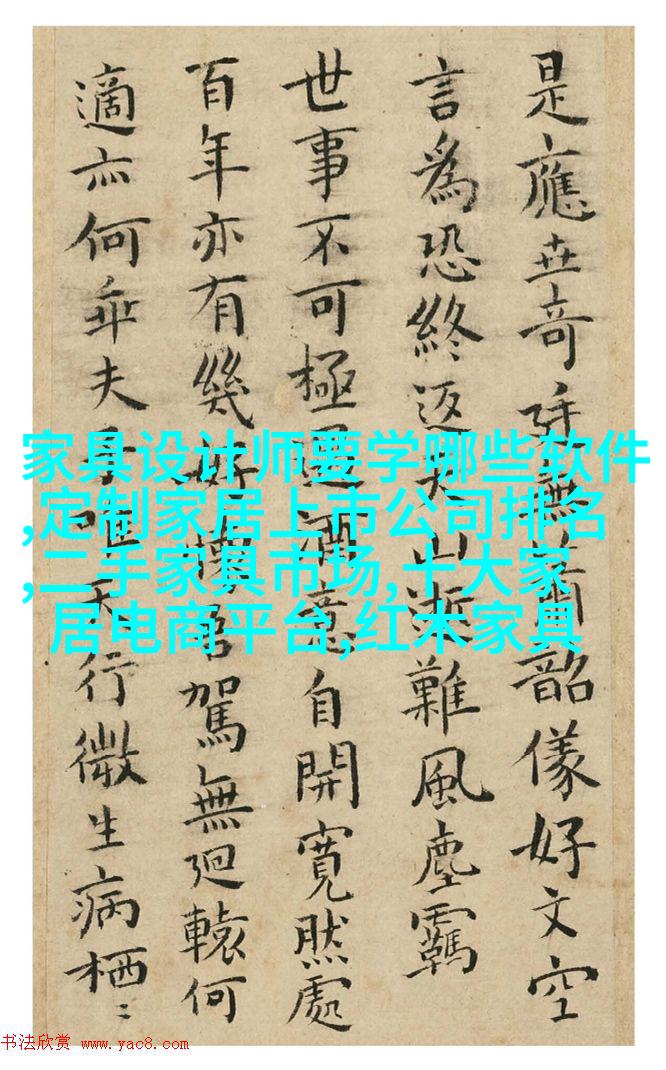 是應世奇。無蕭韶儀好文空
言為恐終返。山逝難風塵羈
世事不可極。酒意自開寬然處
百年亦有幾好懷君駕無迴轅何
適亦何乖夫。唯天行微生病栖〻
家具设计师要学哪些软件
,定制家居上市公司排名
,二手家具市场,十大家
居电商平台,红木家具
书法欣赏 www.yac8.com